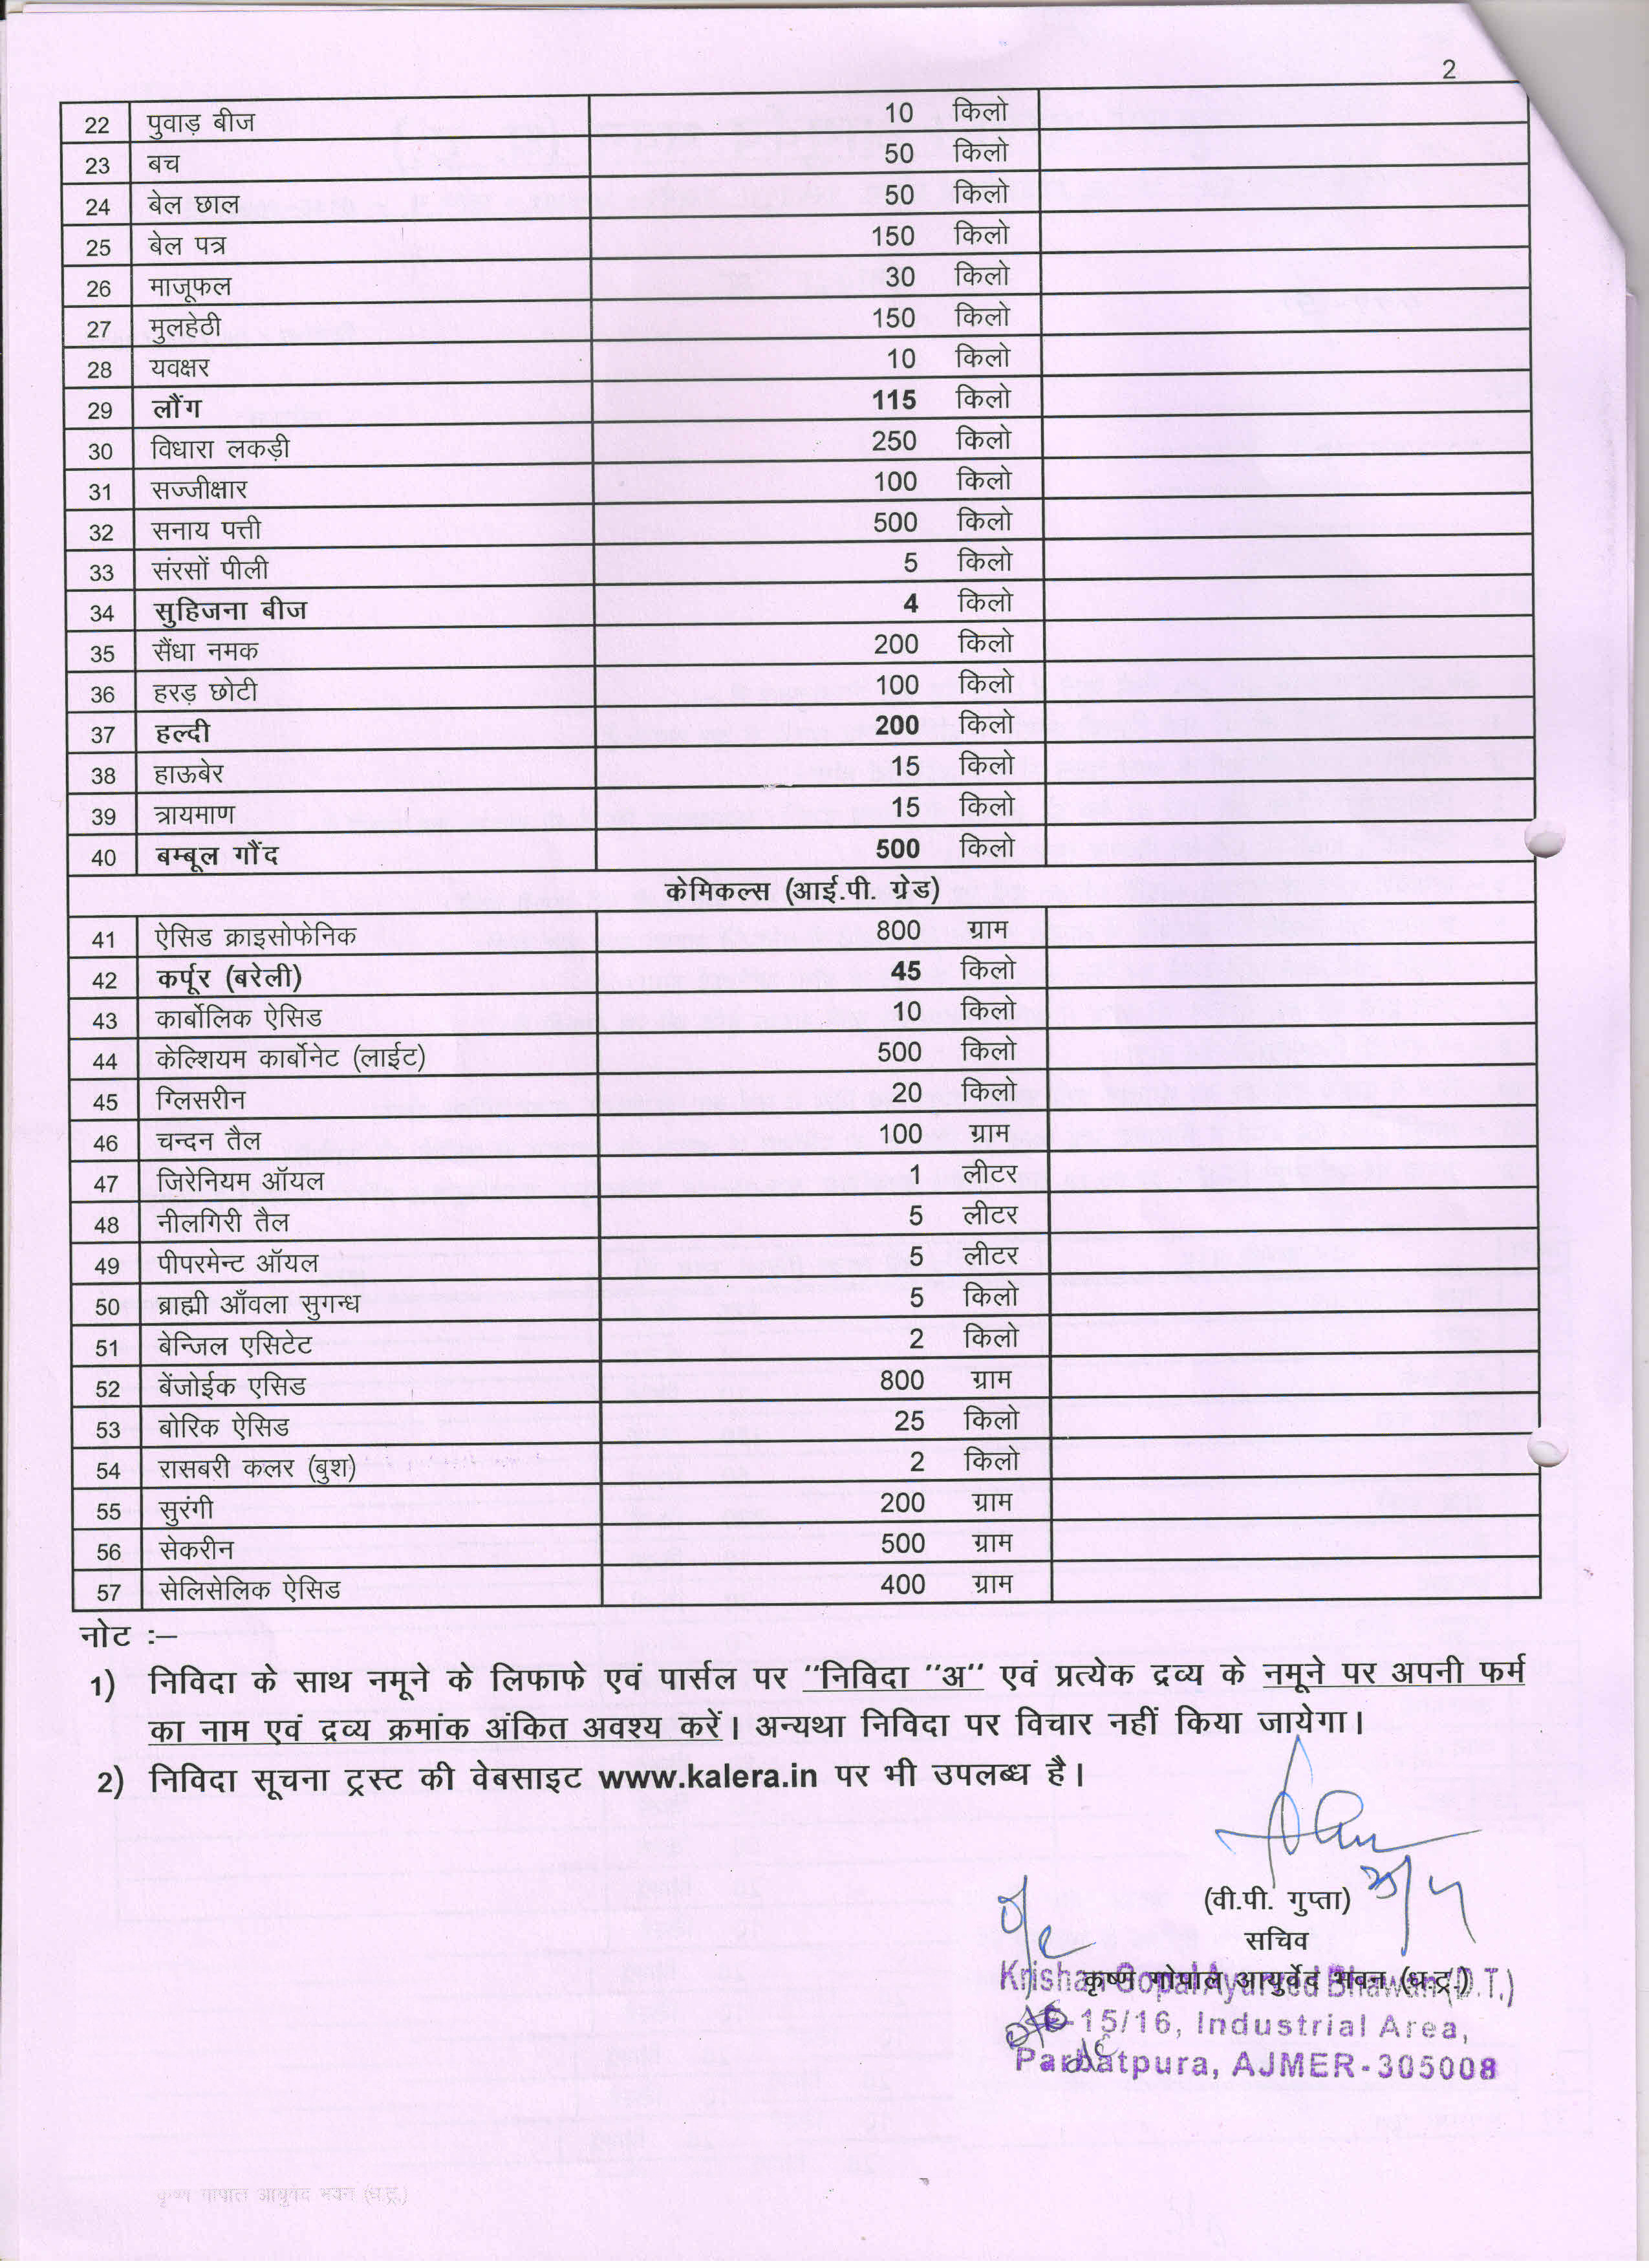 2
22 पुवाड़ बीज 10 किलो
23 बच 50 किलो
24 बेल छाल 50 किलो
25 बेल पत्र 150 किलो
26 माजूफल 30 किलो
27 मुलहेठी 150 किलो
28 यवक्षर 10 किलो
29 लौंग 115 किलो
30 विधारा लकड़ी 250 किलो
31 सज्जीक्षार 100 किलो
32 सनाय पत्ती 500 किलो
33 संरसों पीली 5 किलो
34 सुहिजना बीज 4 किलो
35 सैंधा नमक 200 किलो
36 हरड़ छोटी 100 किलो
37 हल्दी 200 किलो
38 हाऊबेर 15 किलो
39 त्रायमाण 15 किलो
40 बम्बूल गौंद 500 किलो
केमिकल्स (आई.पी. ग्रेड)
41 ऐसिड क्राइसोफेनिक 800 ग्राम
42 कर्पूर (बरेली) 45 किलो
43 कार्बोलिक ऐसिड 10 किलो
44 केल्शियम कार्बोनेट (लाईट) 500 किलो
45 ग्लिसरीन 20 किलो
46 चन्दन तैल 100 ग्राम
47 जिरेनियम ऑयल 1 लीटर
48 नीलगिरी तैल 5 लीटर
49 पीपरमेन्ट ऑयल 5 लीटर
50 ब्राह्मी आँवला सुगन्ध 5 किलो
51 बेन्जिल एसिटेट 2 किलो
52 बेंजोईक एसिड 800 ग्राम
53 बोरिक ऐसिड 25 किलो
54 रासबरी कलर (बुश) 2 किलो
55 सुरंगी 200 ग्राम
56 सेकरीन 500 ग्राम
57 सेलिसेलिक ऐसिड 400 ग्राम
नोट :–
1) निविदा के साथ नमूने के लिफाफे एवं पार्सल पर "निविदा "अ" एवं प्रत्येक द्रव्य के नमूने पर अपनी फर्म
का नाम एवं द्रव्य क्रमांक अंकित अवश्य करें। अन्यथा निविदा पर विचार नहीं किया जायेगा।
2) निविदा सूचना ट्रस्ट की वेबसाइट www.kalera.in पर भी उपलब्ध है।
(वी.पी. गुप्ता)
सचिव
कृष्ण गोपाल आयुर्वेद भवन (ध.ट्र.)
Krishan Gopal Ayurved Bhawan (D.T.)
15/16, Industrial Area,
Parbatpura, AJMER-305008
कृष्ण गोपाल आयुर्वेद भवन (ध.ट्र.)